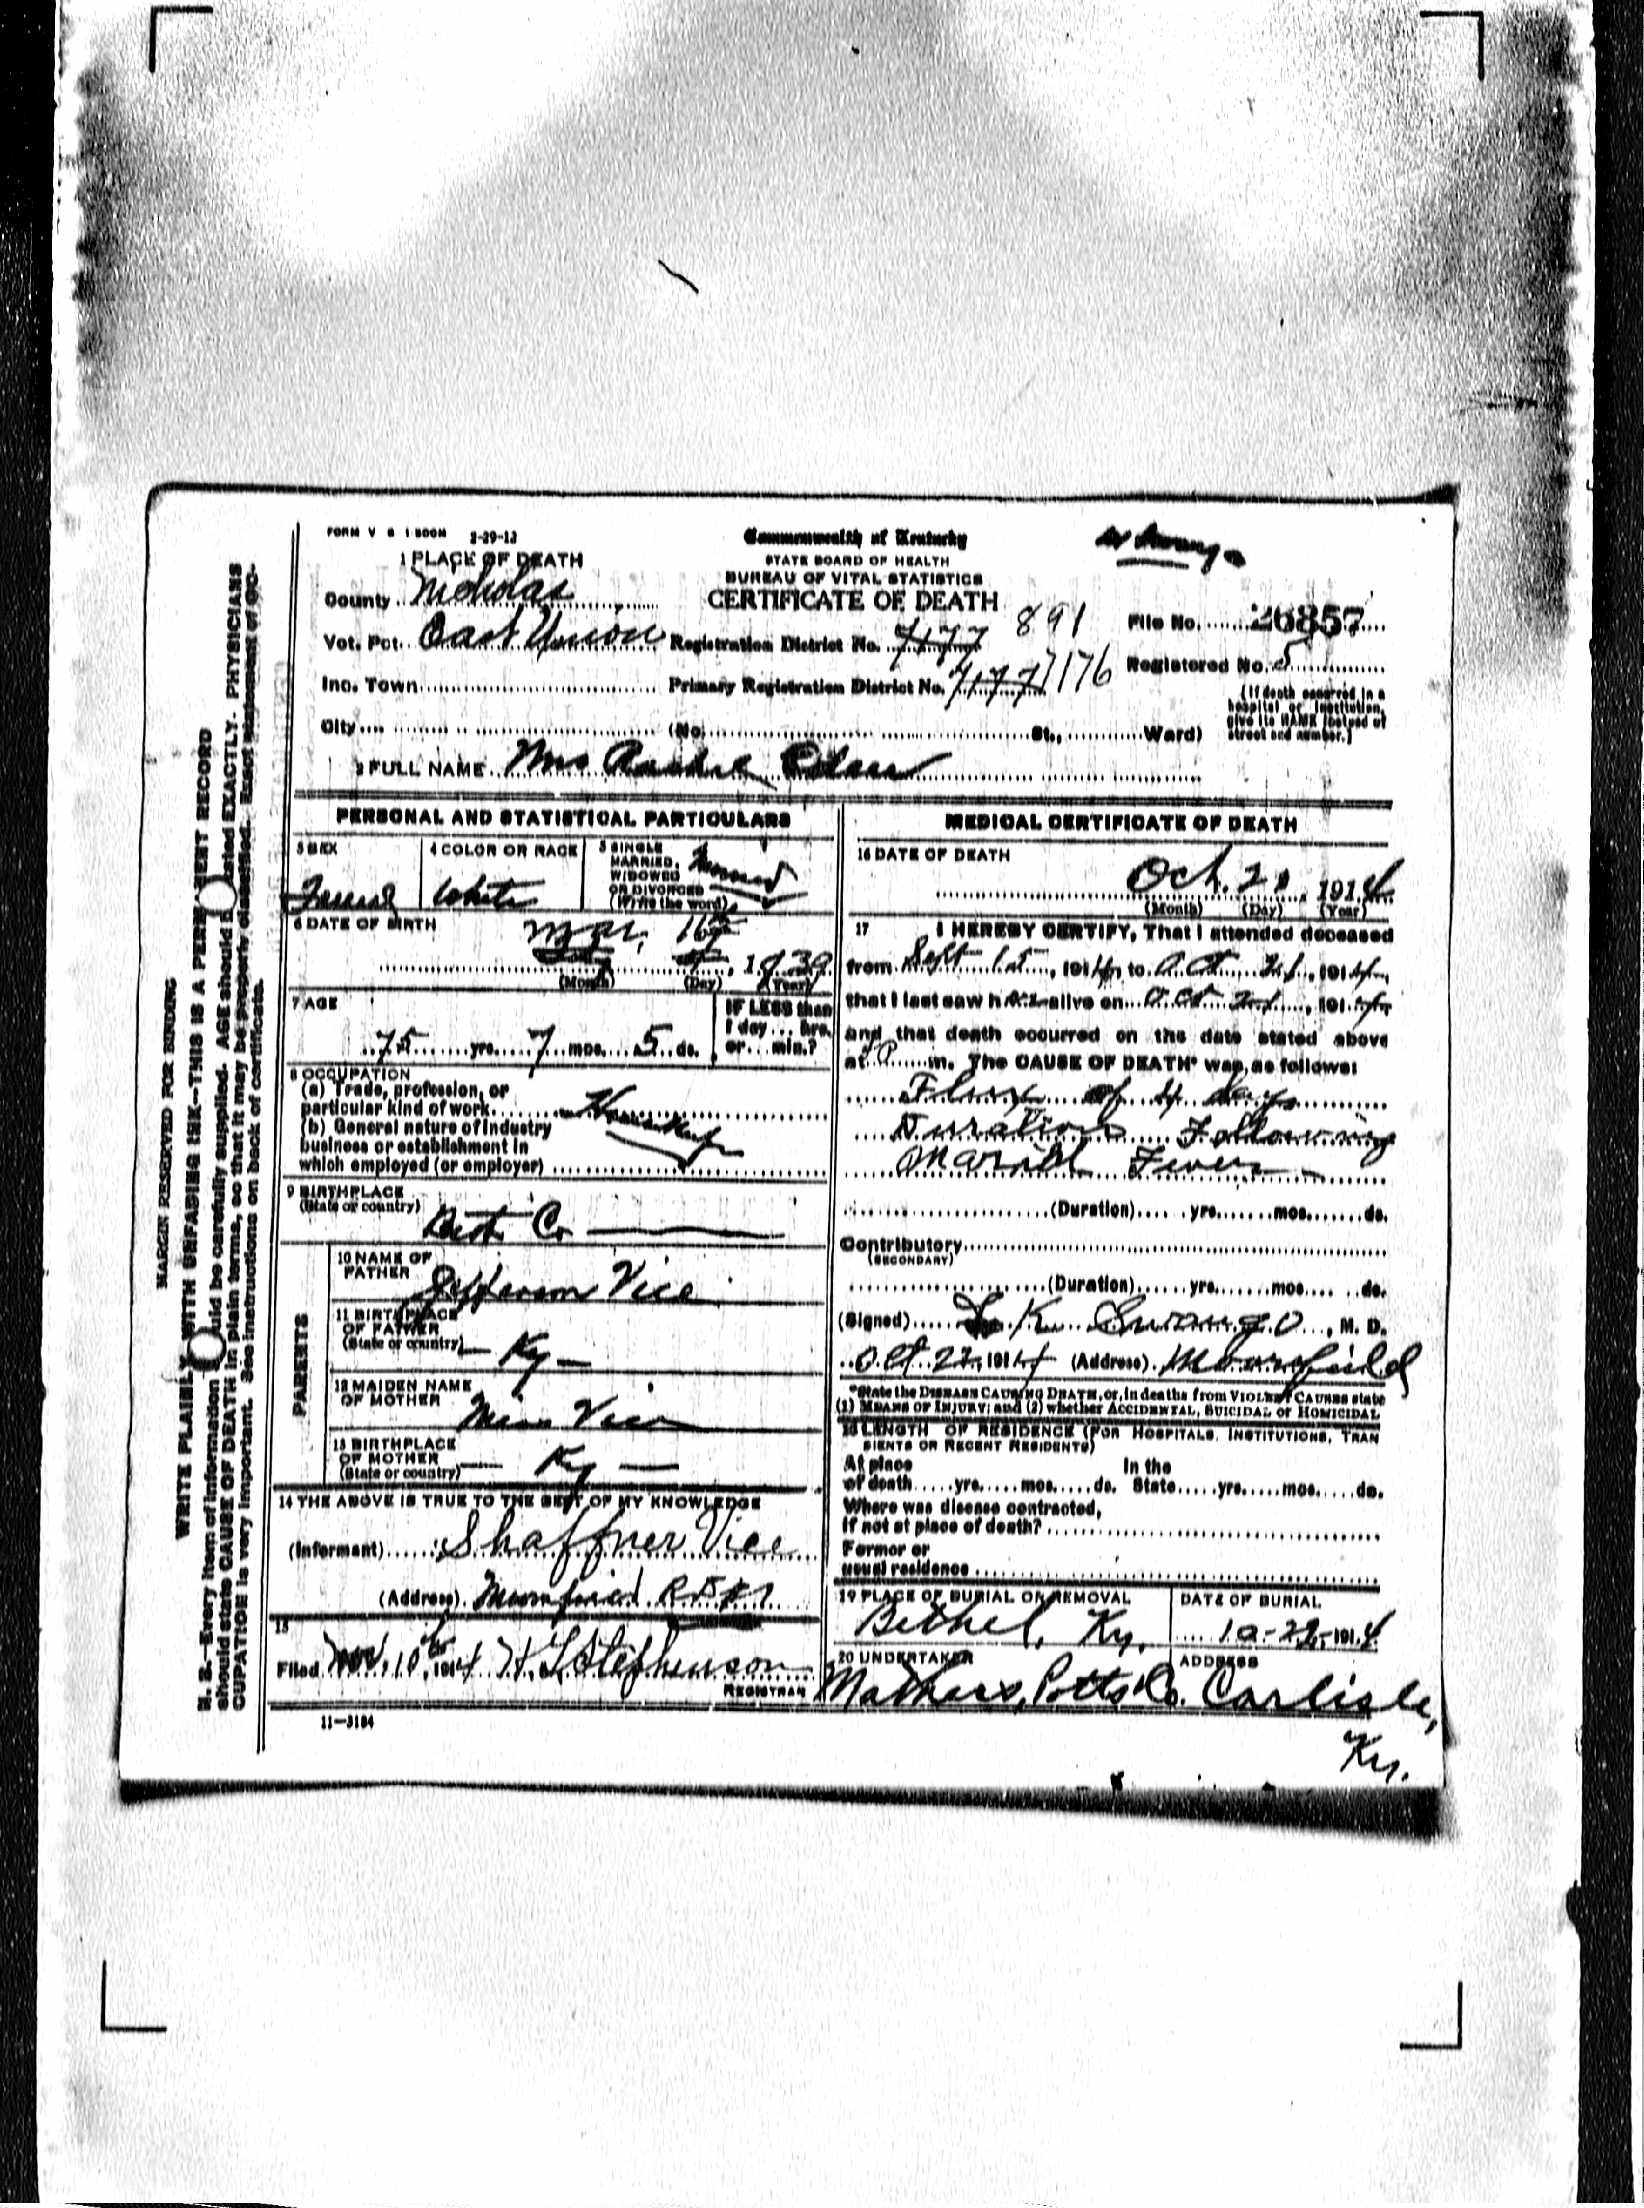 FORM V S 1 500M 2-29-12
Commonwealth of Kentucky
STATE BOARD OF HEALTH
BUREAU OF VITAL STATISTICS
CERTIFICATE OF DEATH
1 PLACE OF DEATH
County Nicholas
Vot. Pct. East Union Registration District No. 7177 891
Inc. Town Primary Registration District No. 7177 7176
City (No. St., Ward)
File No. 26857
Registered No. 5
(If death occurred in a
hospital or institution,
give its NAME instead of
street and number.)
2 FULL NAME Mrs
PERSONAL AND STATISTICAL PARTICULARS
3 SEX
4 COLOR OR RACE White
5 SINGLE
MARRIED,
WIDOWED
OR DIVORCED
(Write the word)
6 DATE OF BIRTH Mar. 16th
, 1839
(Month) (Day) (Year)
7 AGE
75 yrs. 7 mos. 5 ds.
IF LESS than
1 day... hrs.
or... min.?
8 OCCUPATION
(a) Trade, profession, or
particular kind of work
(b) General nature of industry
business or establishment in
which employed (or employer)
9 BIRTHPLACE
(State or country) Bath Co
PARENTS
10 NAME OF
FATHER Jefferson Vice
11 BIRTHPLACE
OF FATHER
(State or country) — Ky —
12 MAIDEN NAME
OF MOTHER Miss Vice
13 BIRTHPLACE
OF MOTHER
(State or country) — Ky —
14 THE ABOVE IS TRUE TO THE BEST OF MY KNOWLEDGE
(Informant) Shaffner Vice
(Address) R.D.#1
15
Filed Nov. 10th, 1914 H. L. Stephenson
REGISTRAR
11—3184
MEDICAL CERTIFICATE OF DEATH
16 DATE OF DEATH
Oct. 21, 1914
(Month) (Day) (Year)
17 I HEREBY CERTIFY, That I attended deceased
from Sept 15, 1914, to Oct 21, 1914,
that I last saw her alive on Oct 21, 1914,
and that death occurred on the date stated above
at m. The CAUSE OF DEATH* was, as follows:
Flux of 4 days
Duration Following
Fever
(Duration) yrs. mos. ds.
Contributory
(SECONDARY)
(Duration) yrs. mos. ds.
(Signed) K. Swango, M. D.
Oct. 22, 1914 (Address) Moorefield
*State the DISEASE CAUSING DEATH, or, in deaths from VIOLENT CAUSES state
(1) MEANS OF INJURY; and (2) whether ACCIDENTAL, SUICIDAL or HOMICIDAL
18 LENGTH OF RESIDENCE (FOR HOSPITALS, INSTITUTIONS, TRAN
SIENTS OR RECENT RESIDENTS)
At place In the
of death yrs. mos. ds. State yrs. mos. ds.
Where was disease contracted,
If not at place of death?
Former or
usual residence
19 PLACE OF BURIAL OR REMOVAL DATE OF BURIAL
Bethel, Ky. 10-22-1914
20 UNDERTAKER ADDRESS
Mathers, Potts & Co. Carlisle,
Ky.
MARGIN RESERVED FOR BINDING
WRITE PLAINLY WITH UNFADING INK—THIS IS A PERMANENT RECORD
N. B.—Every item of information should be carefully supplied. AGE should be stated EXACTLY. PHYSICIANS
should state CAUSE OF DEATH in plain terms, so that it may be properly classified. Exact statement of OC-
CUPATION is very important. See instructions on back of certificate.